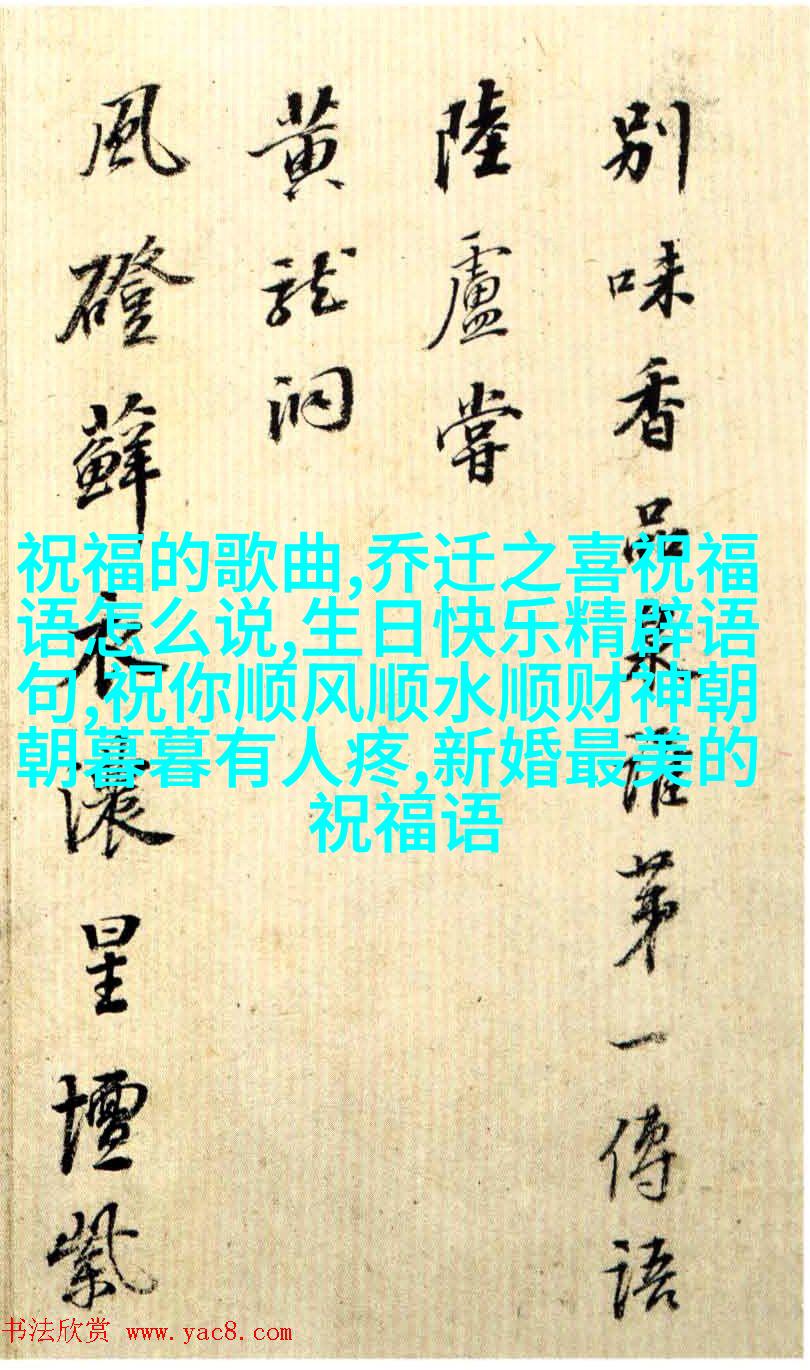 別味香品誰第一傳語
陸盧嘗
黃龍洞
風磴蘚衣濃星壇紫
祝福的歌曲,乔迁之喜祝福
语怎么说,生日快乐精辟语
句,祝你顺风顺水顺财神朝
朝暮暮有人疼,新婚最美的
祝福语
书法欣赏 www.yac8.com